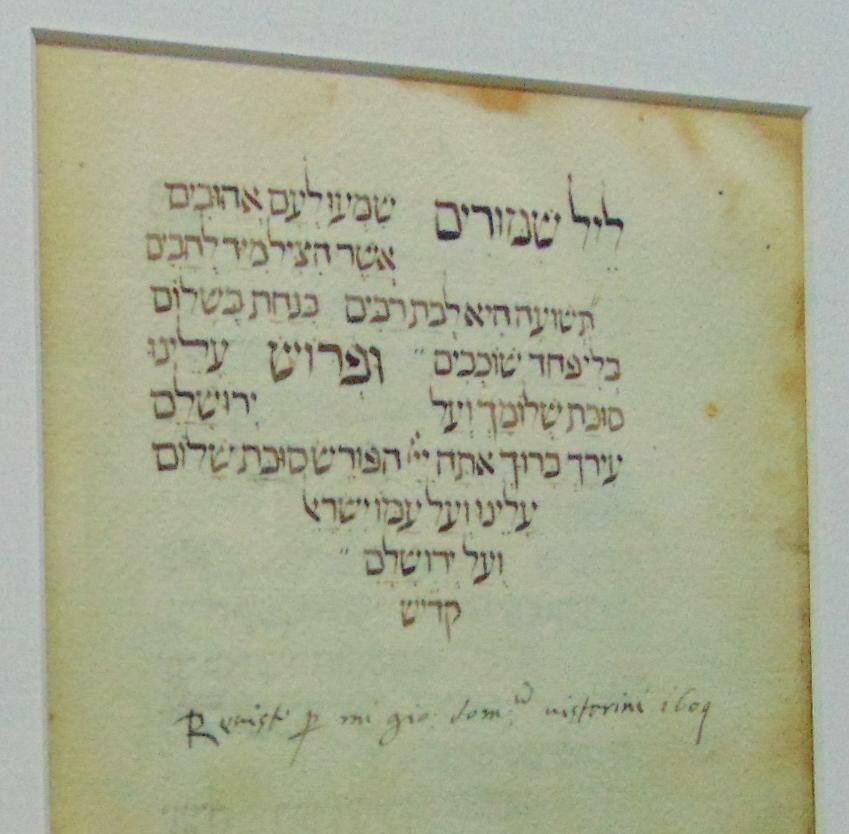 ליל שמורים שמעו לעם אהובים
אשר הציל מיד להבים
תשועה היא לבת רבים בנחת בשלום
בלי פחד שוכבים ופרוש עלינו
סוכת שלומך ועל ירושלם
עירך ברוך אתה ייי הפורש סוכת שלום
עלינו ועל עמו ישרא
ועל ירושלם
קדיש
Revisto p mi gio dom.co vistorini 1609